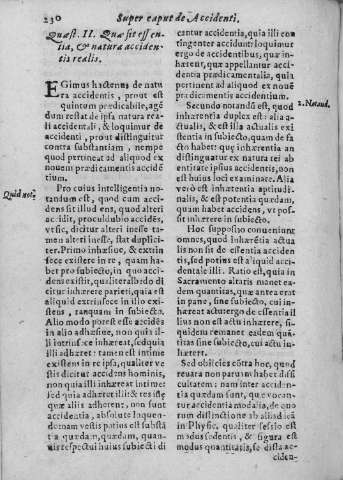 230 Super caput de Accidenti.
Quæst. II. Quæ sit essen
tia, & natura acciden-
tis realis.
EGimus hactenus de natu
ra accidentis, prout est
quintum prædicabile, agē
dum restat de ipsa natura rea-
li accidentali, & loquimur de
accidenti, prout distinguitur
contra substantiam, nempe
quod pertinet ad aliquod ex
nouem prædicamentis accidē
tium.
Pro cuius intelligentia no-
tandum est, quod cum acci-
dens sit illud ens, quod alteri
accidit, proculdubio accidēs,
vt sic, dicitur alteri inesse ta-
men alteri inesse, stat duplici-
ter. Primo inhæsiue, & extrin
sece existere in re, quam ha-
bet pro subiecto, in quo acci-
dens existit, qualiter albedo di
citur inhærere parieti, quia est
aliquid extrinsece in illo exis-
tens, tanquam in subiecto.
Alio modo potest esse accidēs
in alio adhæsiue, non quia il-
li intrinsece inhæreat, sed quia
illi adhæret: tamen est intime
existens in re ipsa, qualiter ve
stis dicitur accidens hominis,
non quia illi inhæreat intime:
sed quia adhæret illi: & res istę
quæ aliis adherent, non sunt
accidentia, absolute loquen-
do nam vestis potius est substā
tia quædam, quædam, quam-
uis respectui huius subiecti di
cantur accidentia, quia illi con
tingenter accidunt: loquimur
ergo de accidentibus, quæ in-
hærent, quæ appellantur acci-
dentia prædicamentalia, quia
pertinent ad aliquod ex noué
prædicamentis accidentium.
Secundo notandū est, quod
inhærentia duplex est: alia a-
ctualis, & est illa actualis exi
stentia in subiecto, quam de fa
cto habet: quę inhærentia an
distinguatur ex natura rei ab
entitate ipsius accidentis, non
est huius loci examinare. Alia
verò est inhærentia aptitudi-
nalis, & est potentia quædam,
quam habet accidens, vt pos-
sit inhærere in subiecto.
Hoc supposito conueniunt
omnes, quod inhærētia actua
lis non sit de essentia acciden
tis, sed potius est aliquid acci-
dentale illi. Ratio est, quia in
Sacramento altaris manet ea-
dem quantitas, quæ antea erat
in pane, sine subiecto, cui in-
hæreat actu: ergo de essentia il
lius non est actu inhærere, si-
quidem remanet eadem quā-
titas sine subiecto, cui actu in-
hæreat.
Sed obiicies cōtra hoc, quod
reuera non parum habet diffi
cultatem: nam inter acciden-
tia quædam sunt, quę vocan-
tur accidentia modalia, de quo
rum distinctione ab alia dicā
in Physic. qualiter sessio est
modus sedentis, & figura est
modus quantitatis, se ista ac-
ciden-
Quid notę
2. Notand.